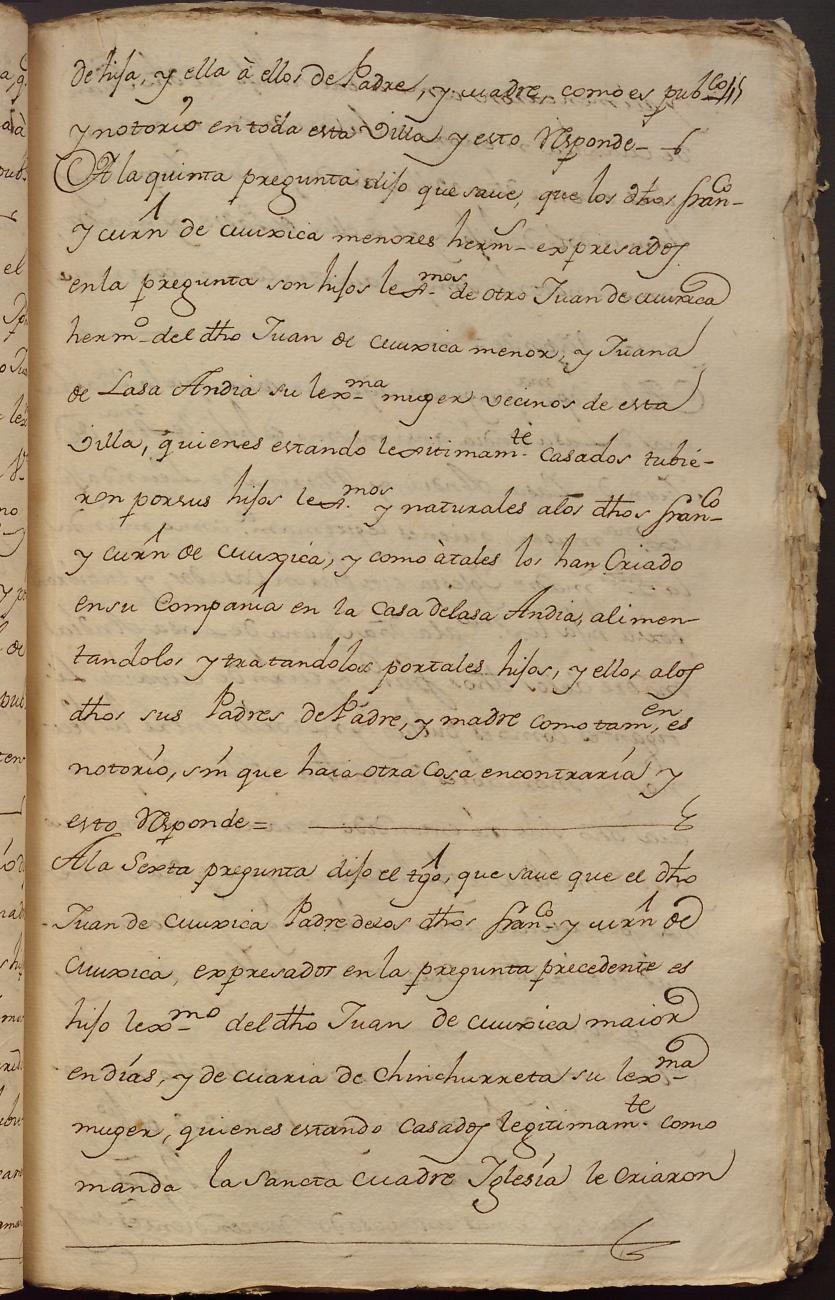 de hija, y ella à ellos de Padre, y madre, como es pub.co
y notorio en toda esta Villa y esto Responde-
A la quinta pregunta dijo que save, que los dhos fran.co
y mrn de Muxica menores herms expresados
en la pregunta son hijos lexmos de otro Juan de Muxica
hermo del dho Juan de Muxica menor, y Juana
de Lasa Andia su lexma muger vecinos de esta
Villa, quienes estando lexitimamte casados tubie-
ron por sus hijos lexmos y naturales a los dhos franco
y mrn de Muxica, y como à tales los han Criado
en su Compania en la Casa de lasa Andia, alimen-
tandolos y tratandolos por tales hijos, y ellos a los
dhos sus Padres de Padre, y madre como tamen, es
notorio, sin que haia otra Cosa encontraria y
esto Responde=
A la Sexta pregunta dijo el tgo, que save que el dho
Juan de Muxica Padre de los dhos franco y mrn de
Muxica, expresados en la pregunta precedente es
hijo lexmo del dho Juan de Muxica maior
en días, y de Maria de Chinchurreta su lexma
muger, quienes estando Casados legitimamte como
manda la Sancta Madre Iglesía le Criaron